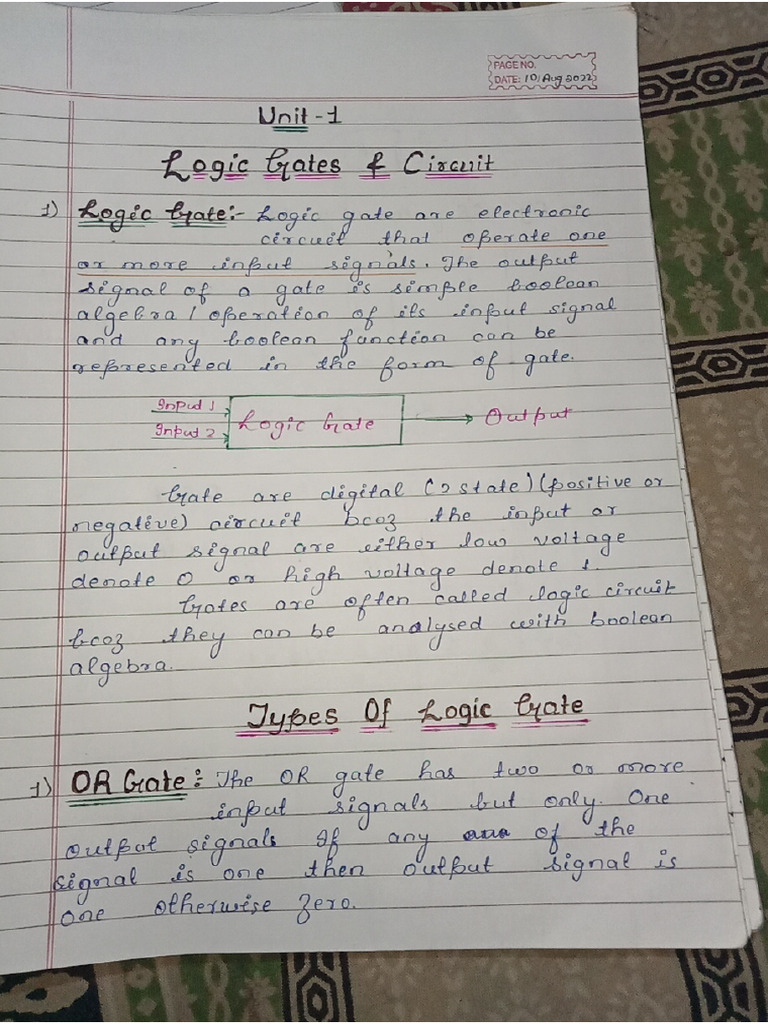 PAGE NO.
DATE: 10/Aug 2022
Unit-1
Logic Gates & Circuit
1) Logic Gate:- Logic gate are electronic
circuit that operate one
or more input signals. The output
signal of a gate is simple boolean
algebra / operation of its input signal
and any boolean function can be
represented in the form of gate.
Input 1
Input 2
Logic Gate
Output
Gate are digital (2 state) (positive or
negative) circuit bcoz the input or
output signal are either low voltage
denote 0 or high voltage denote 1.
Gates are often called logic circuit
bcoz they can be analysed with boolean
algebra.
Types Of Logic Gate
1) OR Gate: The OR gate has two or more
input signals but only. One
output signals If any of the
signal is one then output signal is
one otherwise zero.